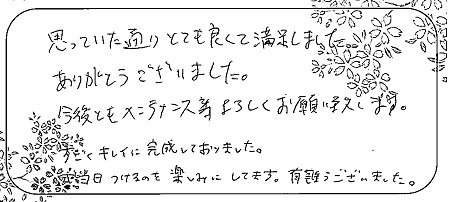 思っていた通りとても良くて満足しました
ありがとうございました。
今後ともメンテナンス等よろしくお願い致します。
すごくキレイに完成しておりました。
当日つけるのを楽しみにしてます。有難うございました。